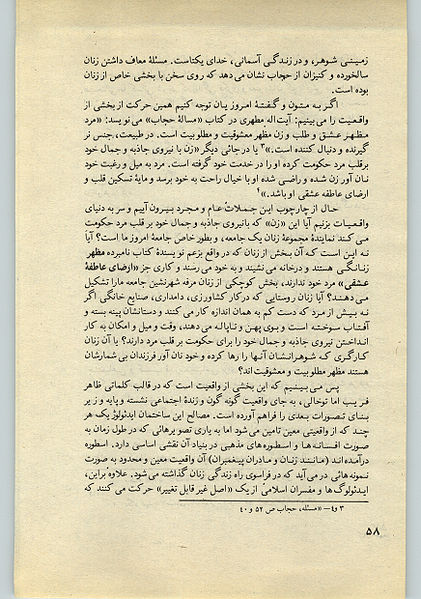 زمینی شوهر، و در زندگی آسمانی، خدای یکتاست. مسئلهٔ معاف داشتن زنان
سالخورده و کنیزان از حجاب نشان می‌دهد که روی سخن با بخشی خاص از زنان
بوده است.
اگر به متون و گفتهٔ امروز یان توجه کنیم همین حرکت از بخشی از
واقعیت را می‌بینیم: آیت‌اله مطهری در کتاب «مسالهٔ حجاب» می‌نویسد: «مرد
مظهر عشق و طلب و زن مظهر معشوقیت و مطلوبیت است. در طبیعت، جنس نر
گیرنده و دنبال کننده است.»۳ یا در جائی دیگر «زن با نیروی جاذبه و جمال خود
برقلب مرد حکومت کرده او را در خدمت خود گرفته است. مرد به میل و رغبت خود
نان آور زن شده و راضی شده او با خیال راحت به خود برسد و مایهٔ تسکین قلب و
ارضای عاطفه عشقی او باشد.»۴
حال از چارچوب این جملات عام و مجرد بیرون آییم و سر به دنیای
واقعیات بزنیم آیا این «زن» که بانیروی جاذبه و جمال خود بر قلب مرد حکومت
می‌کند نمایندهٔ مجموعهٔ زنان یک جامعه، و بطور خاص جامعهٔ امروز ما است؟ آیا
نه این است که آن بخش از زنان که در واقع بزعم نویسندهٔ کتاب نامبرده مظهر
زنانگی هستند و درخانه می‌نشیند و به خود می‌رسند و کاری جز «ارضای عاطفهٔ
عشقی» مرد خود ندارند، بخش کوچکی از زنان مرفه شهرنشین جامعه ما را تشکیل
می‌دهند؟ آیا زنان روستایی که در کار کشاورزی، دامداری، صنایع خانگی اگر
نه بیش از مرد که دست کم به همان اندازه کار می‌کنند و دستانشان پینه بسته و
آفتاب سوخته است و بوی پهن و تاپاله می‌دهند، وقت و میل و امکان به کار
انداختن نیروی جاذبه و جمال خود را برای حکومت بر قلب مرد دارند؟ یا آن زنان
کارگری که شوهرانشان آنها را رها کرده و خود نان آور فرزندان بی شمارشان
هستند مظهر مطلوبیت و معشوقیت‌اند؟
پس می‌بینیم که این بخشی از واقعیت است که در قالب کلماتی ظاهر
فریب اما توخالی، به جای واقعیت گونه گون و زندهٔ اجتماعی نشسته و پایه و زیر
بنای تصورات بعدی را فراهم آورده است. مصالح این ساختمان ایدئولوژیک هر
چند که از واقعیتی معین تامین می‌شود اما به یاری تصویرهائی که در طول زمان به
صورت افسانه‌ها و اسطوره‌های مذهبی در بنیاد آن نقشی اساسی دارد. اسطوره
درآمده‌اند (مانند زنان و مادران پیغمبران) آن واقعیت معین و محدود به صورت
نمونه‌هائی در می‌آید که در فراسوی راه زندگی زنان گذاشته می‌شود. علاوه براین،
ایدئولوگ‌ها و مفسران اسلامی از یک «اصل غیر قابل تغییر» حرکت می‌کنند که
۳ و۴— «مسئله، حجاب ص ۵۲ و ۴۰
۵۸